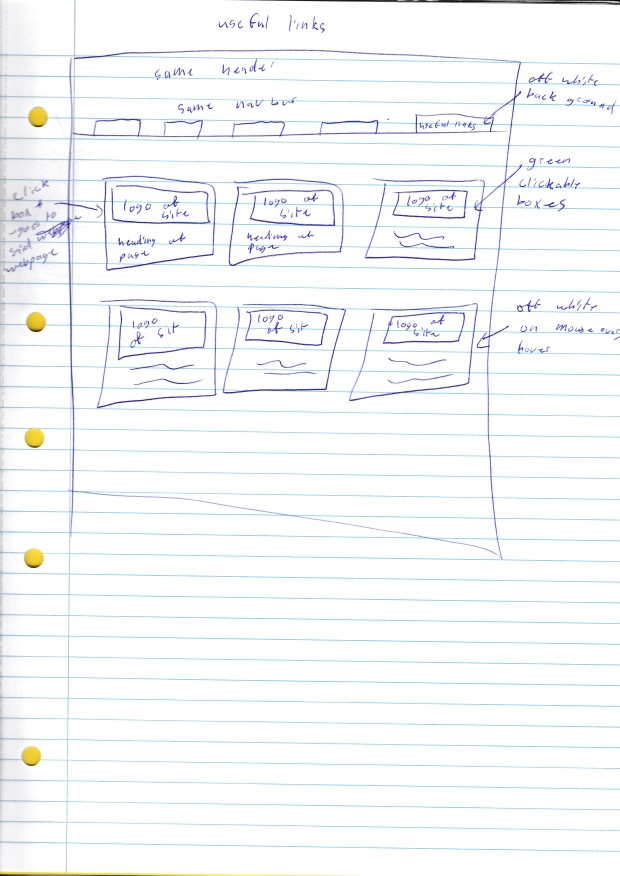 useful links
same header
same nav bar
useful links
off white
back ground
green
clickable
boxes
click
box &
goes to
said
webpage
logo of
site
heading of
page
logo of
site
heading of
page
logo of
site
logo
of sit
logo
of sit
logo of
site
off white
on mouse over
hover